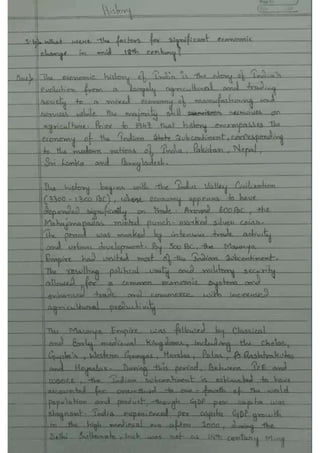 History
What were the factors for significant economic
change in mid 18th century?
The economic history of India is the story of India's
evolution from a largely agricultural and trading
society to a mixed economy of manufacturing and
services while the majority still survives on
agriculture. Prior to 1947 that history encompasses the
economy of the Indian Subcontinent, corresponding
to the modern nations of India, Pakistan, Nepal,
Sri Lanka and Bangladesh.
This history begins with the Indus Valley Civilization
(3300-1300 BC), whose economy appears to have
depended significantly on Trade. Around 600 BC, the
Mahajanapadas minted punch-marked silver coins.
The period was marked by intensive trade activity
and urban development. By 300 BC, the Maurya
Empire had united most of the Indian Subcontinent.
The resulting political unity and military security
allowed for a common economic system and
enhanced trade and commerce, with increased
agricultural productivity.
The Maurya Empire was followed by Classical
and Early medieval kingdoms, including the Cholas,
Gupta's, Western Gangas, Harsha, Palas, Rashtrakutas
and Hoysalas. During this period, Between 1 CE and
1000 CE, the Indian subcontinent is estimated to have
accounted for one-third to one-fourth of the world
population and product, though GDP per capita was
stagnant. India experienced per capita GDP growth
in the high medieval era after 1000, during the
Delhi Sultanate, but was not as 15th century Ming